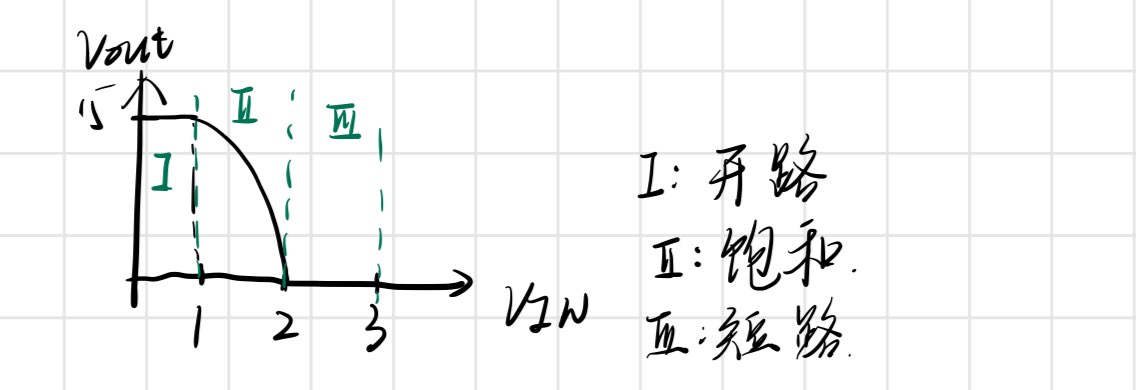 Vout
15
I
II
III
1
2
3
VIN
I: 开路
II: 饱和.
III: 短路.